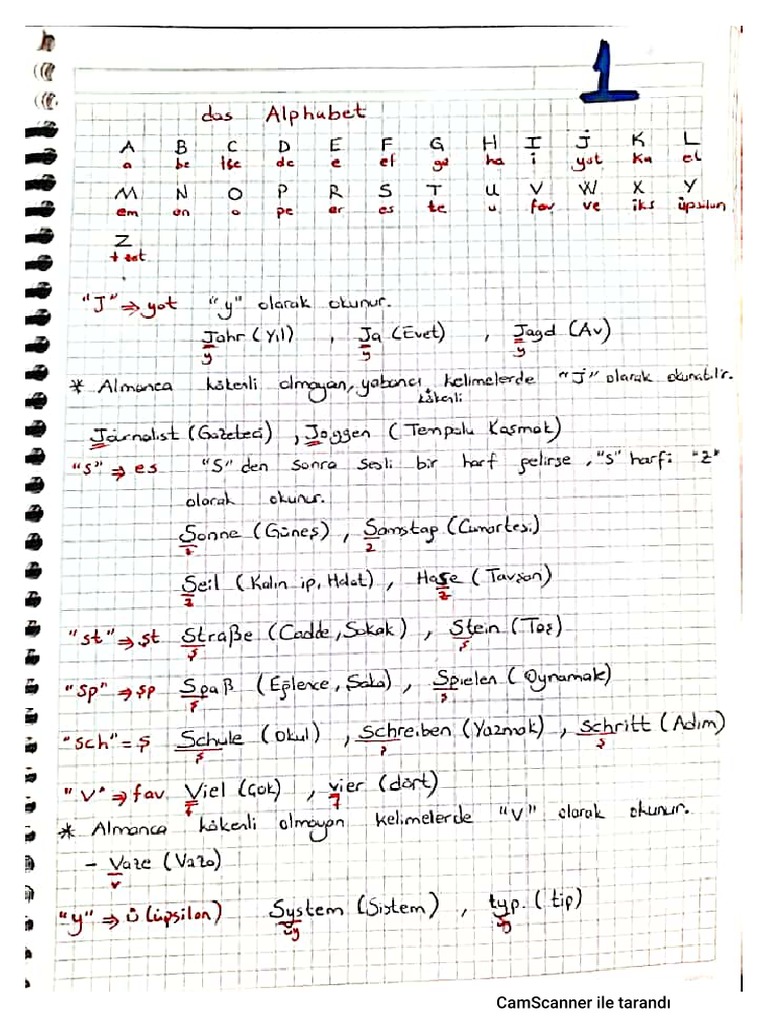 1
das Alphabet
A B C D E F G H I J K L
a be tse de e ef ge ha i yot ka el
M N O P R S T U V W X Y
em en o pe er es te u fav ve iks üpsilon
Z
tset
"J" ⇒ yot "y" olarak okunur.
Jahr (Yıl) , Ja (Evet) , Jagd (Av)
y y y
* Almanca kökenli olmayan, yabancı kelimelerde "J" olarak okunabilir.
kökenli
Journalist (Gazeteci) , Joggen (Tempolu Koşmak)
"S" ⇒ es "S" den sonra sesli bir harf gelirse, "S" harfi "Z"
olarak okunur.
Sonne (Güneş) , Samstag (Cumartesi)
z z
Seil (Kalın ip, Halat) , Hase (Tavşan)
z z
"st" ⇒ şt Straße (Cadde, Sokak) , Stein (Taş)
ş ş
"Sp" ⇒ şp Spaß (Eğlence, Şaka) , Spielen (Oynamak)
ş ş
"Sch" = ş Schule (okul) , Schreiben (Yazmak) , Schritt (Adım)
ş ş ş
"V" ⇒ fav Viel (Çok) , vier (dört)
f f
* Almanca kökenli olmayan kelimelerde "V" olarak okunur.
- Vaze (Vazo)
v
"y" ⇒ ü (üpsilon) System (Sistem) , typ. (tip)
üy üy
CamScanner ile tarandı